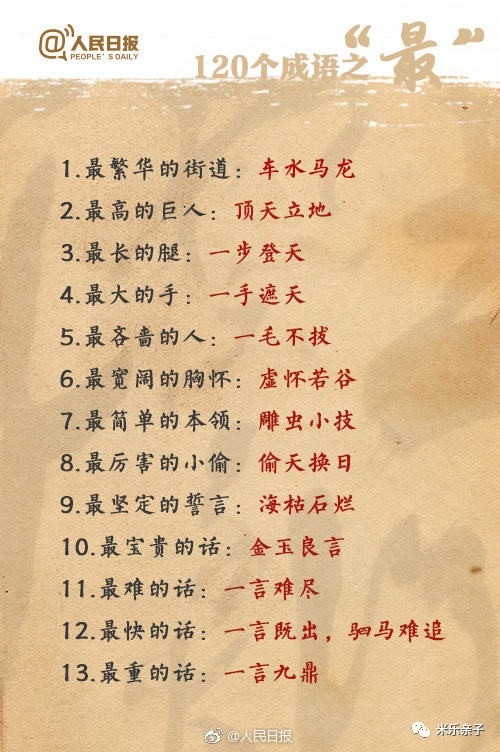 @人民日报
PEOPLE'S DAILY
120个成语之“最”
1.最繁华的街道：车水马龙
2.最高的巨人：顶天立地
3.最长的腿：一步登天
4.最大的手：一手遮天
5.最吝啬的人：一毛不拔
6.最宽阔的胸怀：虚怀若谷
7.最简单的本领：雕虫小技
8.最厉害的小偷：偷天换日
9.最坚定的誓言：海枯石烂
10.最宝贵的话：金玉良言
11.最难的话：一言难尽
12.最快的话：一言既出，驷马难追
13.最重的话：一言九鼎
@人民日报
米乐亲子